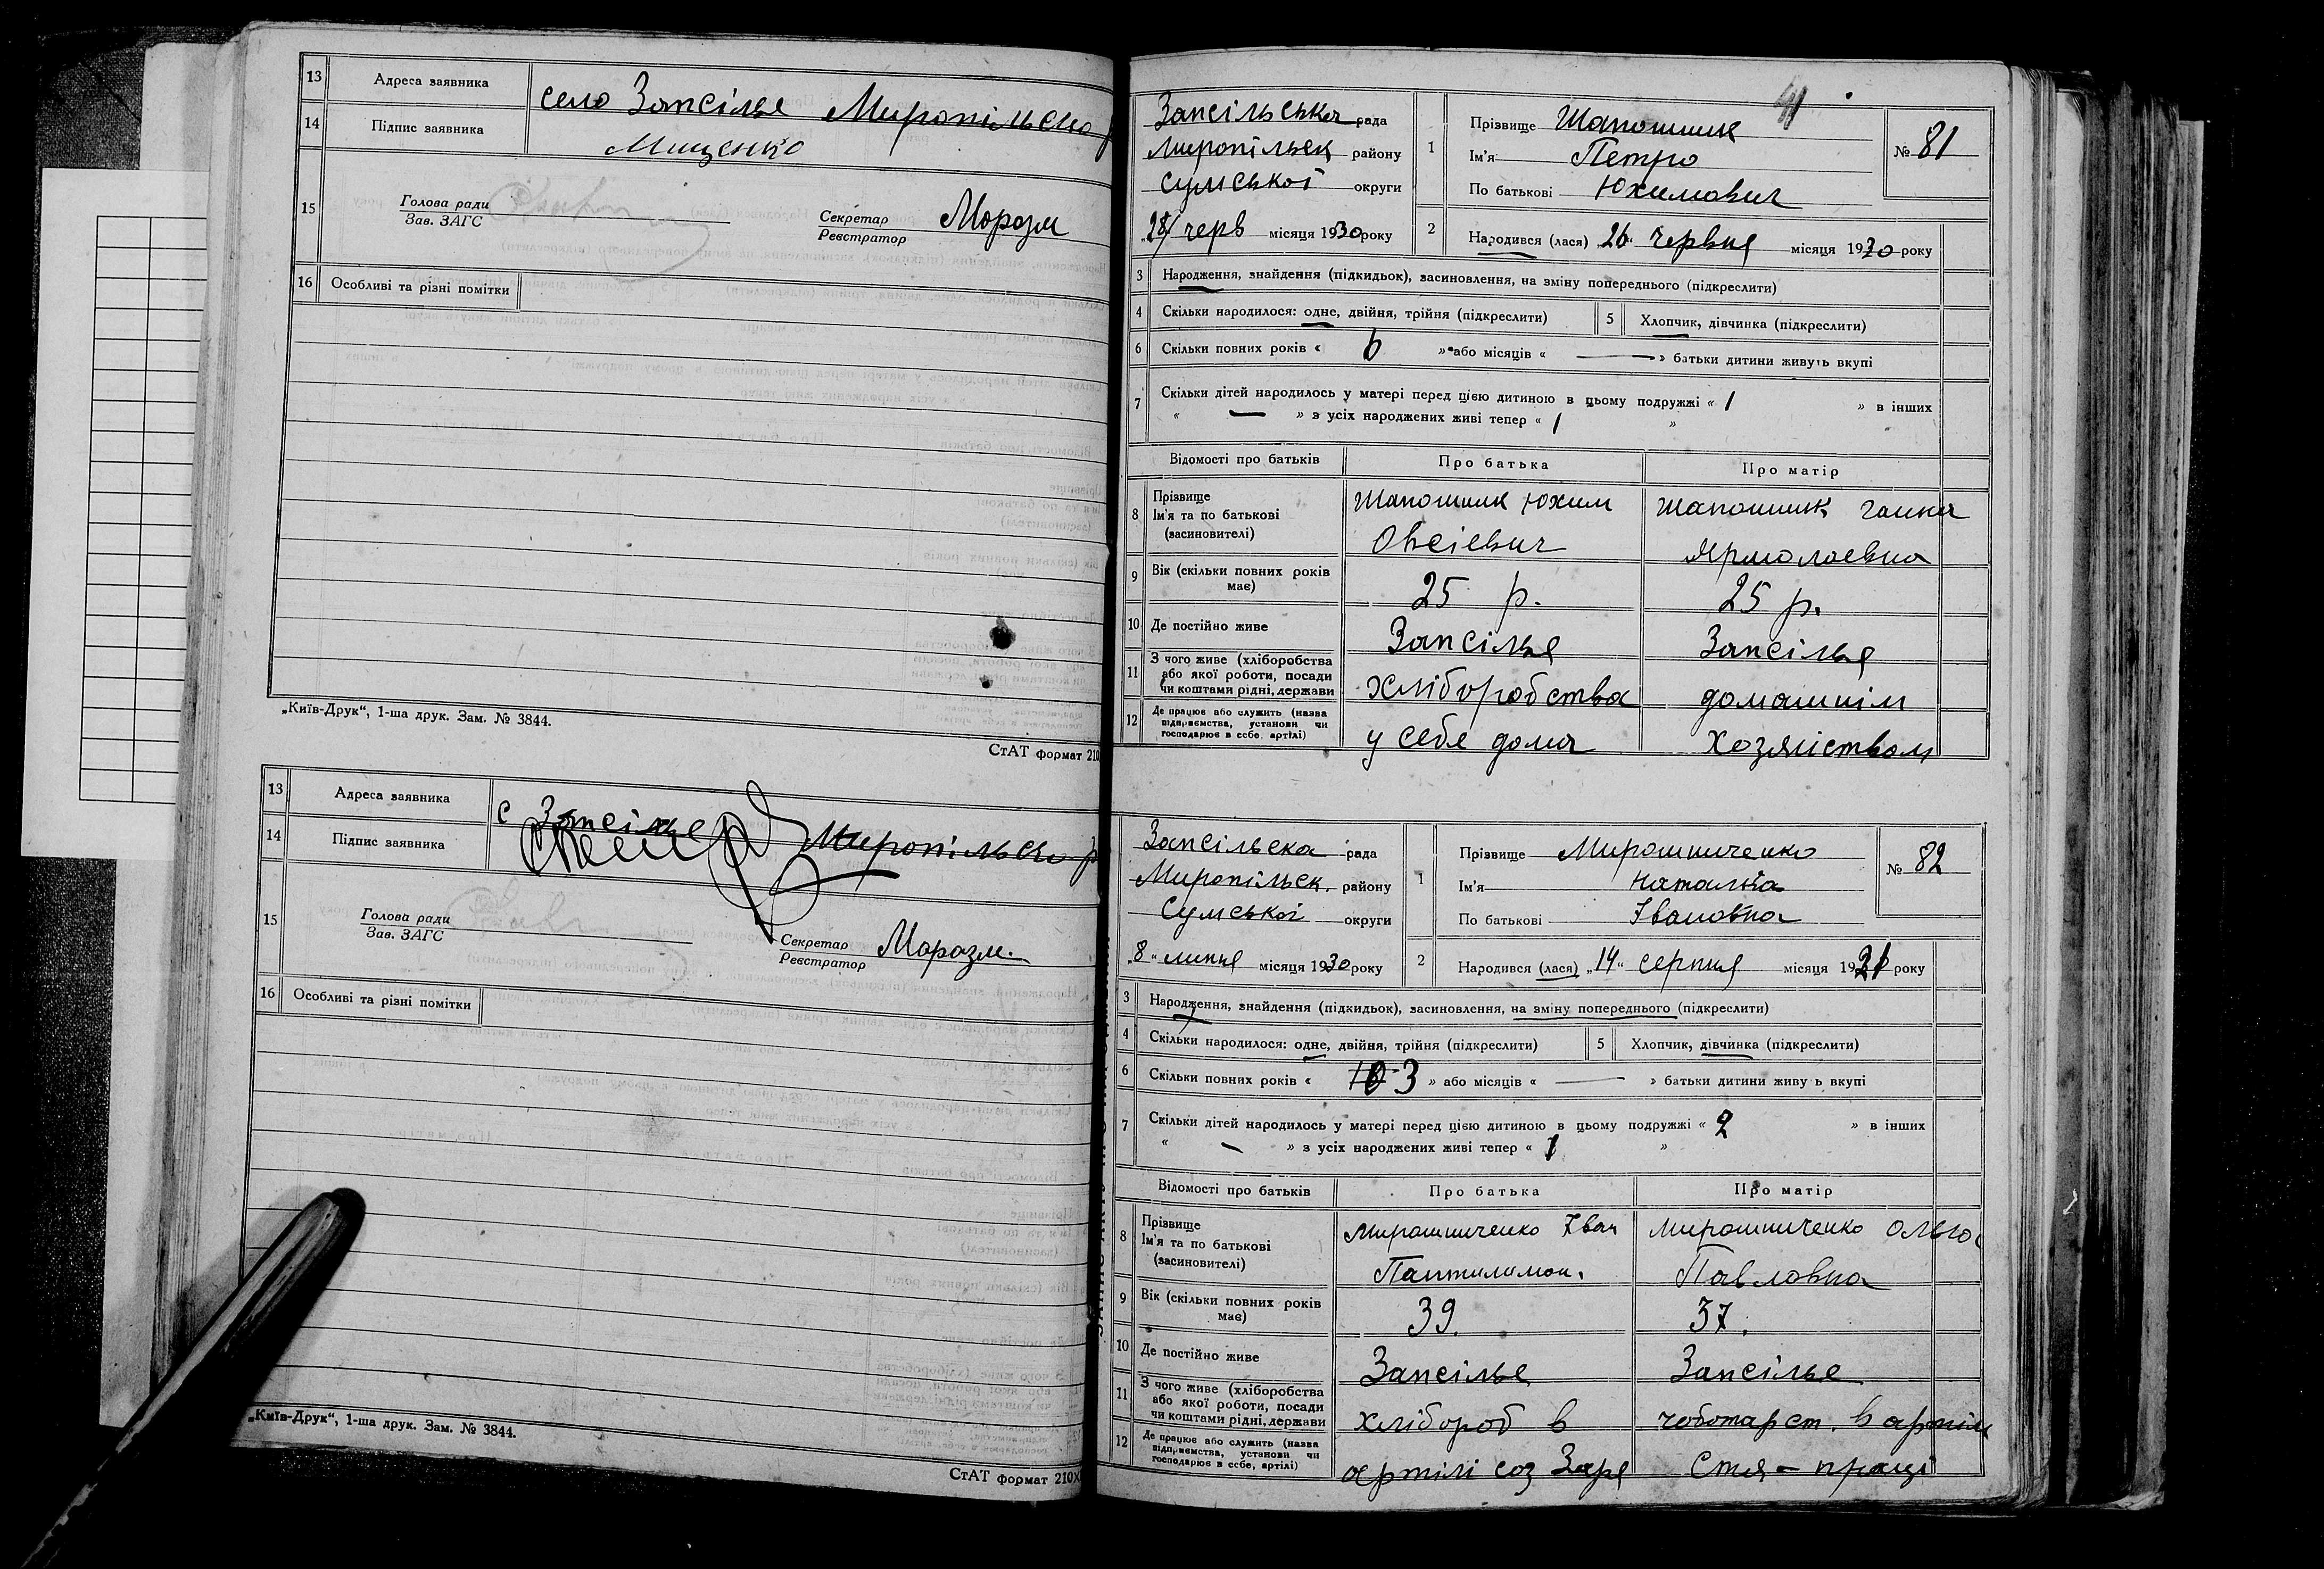 13 Адреса заявника село Запсілье Миропільсько
14 Підпис заявника Мищенко
15 Голова ради
Зав. ЗАГС
Секретар
Реєстратор
16 Особливі та різні помітки
„Київ-Друк“, 1-ша друк. Зам. № 3844.
СтАТ формат 210
13 Адреса заявника с Запсілье Миропільсько р
14 Підпис заявника
15 Голова ради
Зав. ЗАГС
Секретар
Реєстратор
16 Особливі та різні помітки
„Київ-Друк“, 1-ша друк. Зам. № 3844.
СтАТ формат 210X
41
Запсільська рада
Миропільськ району
Сумської округи
„28“ черв місяця 1930 року
1 Прізвище Шапошник
Ім'я Петро
По батькові Юхимович
№ 81
2 Народився (лася) „26“ червня місяця 1930 року
3 Народження, знайдення (підкидьок), засиновлення, на зміну попереднього (підкреслити)
4 Скільки народилося: одне, двійня, трійня (підкреслити) 5 Хлопчик, дівчинка (підкреслити)
6 Скільки повних років « 6 » або місяців « — » батьки дитини живуть вкупі
7 Скільки дітей народилось у матері перед цією дитиною в цьому подружжі « 1 » в інших
« — » з усіх народжених живі тепер « 1 »
Відомості про батьків Про батька Про матір
8 Прізвище
Ім'я та по батькові
(засиновителі)
Шапошник Юхим
Овсієвич
Шапошник Ганна
Ярмолаевна
9 Вік (скільки повних років має) 25 р. 25 р.
10 Де постійно живе Запсілье Запсілье
11 З чого живе (хліборобства
або якої роботи, посади
чи коштами рідні, держави
хліборобства домашнім
12 Де працює або служить (назва
підприємства, установи чи
господарює в себе, артілі)
у себе дома хозяйством
Запсільска рада
Миропільск. району
Сумської округи
„8“ липня місяця 1930 року
1 Прізвище Мирошниченко
Ім'я Наталка
По батькові Івановна
№ 82
2 Народився (лася) „14“ серпня місяця 19 року
3 Народження, знайдення (підкидьок), засиновлення, на зміну попереднього (підкреслити)
4 Скільки народилося: одне, двійня, трійня (підкреслити) 5 Хлопчик, дівчинка (підкреслити)
6 Скільки повних років « 10 3 » або місяців « — » батьки дитини живу ь вкупі
7 Скільки дітей народилось у матері перед цією дитиною в цьому подружжі « 2 » в інших
« — » з усіх народжених живі тепер « 1 »
Відомості про батьків Про батька Про матір
8 Прізвище
Ім'я та по батькові
(засиновителі)
Мирошниченко Іван
Пантилимон.
Мирошниченко Ольга
Павловна
9 Вік (скільки повних років має) 39. 37.
10 Де постійно живе Запсілье Запсілье
11 З чого живе (хліборобства
або якої роботи, посади
чи коштами рідні, держави
хлібороб в чоботарст. в артілі
12 Де працює або служить (назва
підприємства, установи чи
господарює в себе, артілі)
артілі соз Заря - праці